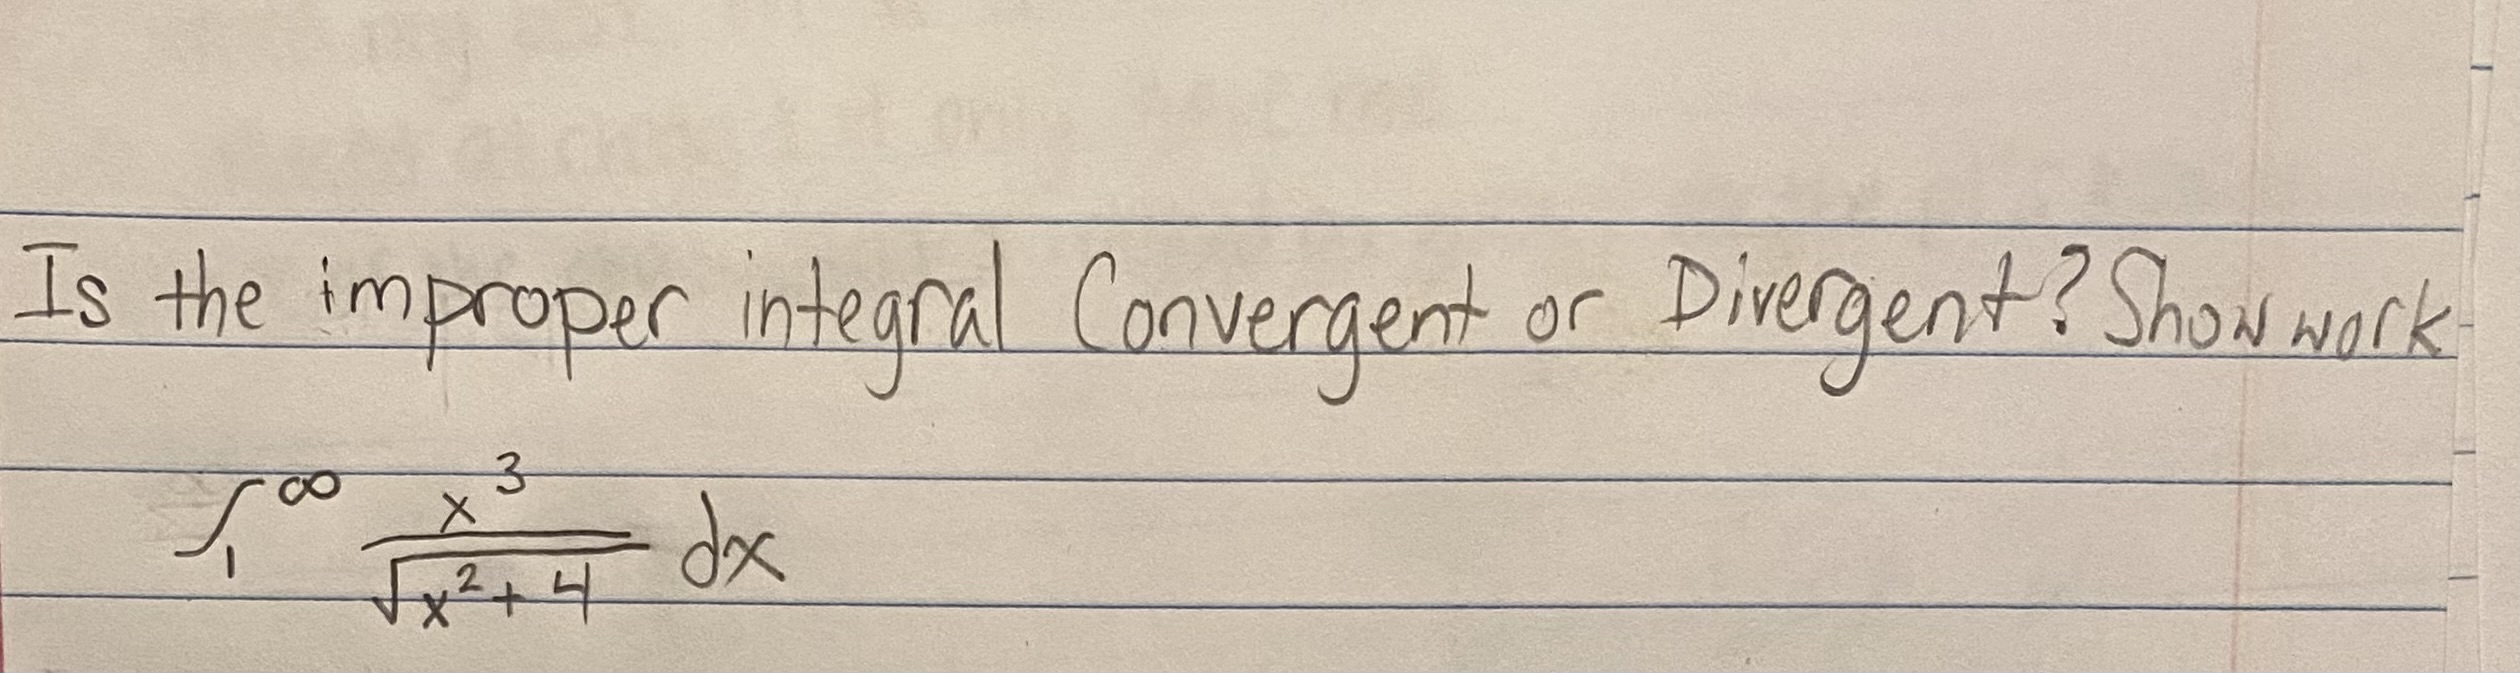 Is the improper integral Convergent or Divergent? Show work
∫₁^∞ x³/√(x²+4) dx